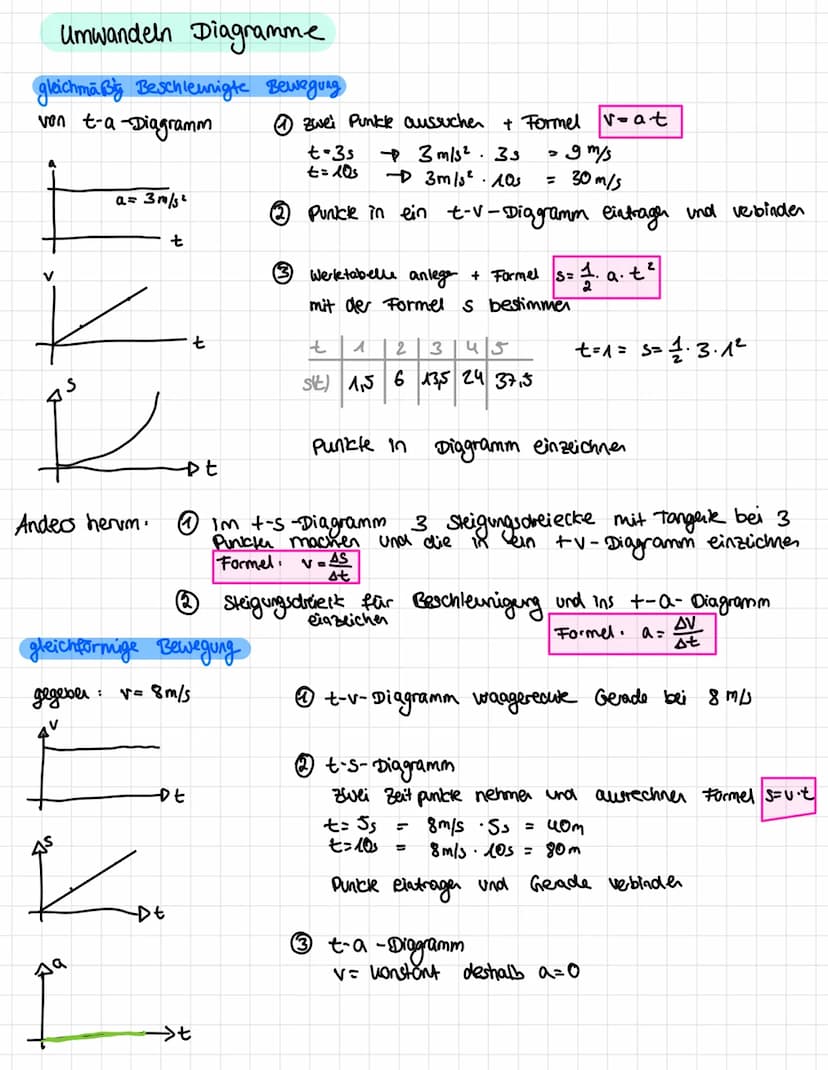 Umwandeln Diagramme
gleichmäßig Beschleunigte Bewegung
von t-a-Diagramm
① Zwei Punkte aussuchen + Formel v=a·t
t=3s → 3m/s² · 3s = 9m/s
t=10s → 3m/s² · 10s = 30m/s
a
a= 3m/s²
t
② Punkte in ein t-v-Diagramm eintragen und verbinden
v
t
③ Wertetabelle anlegen + Formel s= 1/2 · a · t²
mit der Formel s bestimmen
t | 1 | 2 | 3 | 4 | 5
s(t) | 1,5 | 6 | 13,5 | 24 | 37,5
t=1 = s= 1/2 · 3 · 1²
s
t
Punkte in Diagramm einzeichnen
Anders herum:
① Im t-s-Diagramm 3 Steigungsdreiecke mit Tangente bei 3
Punkten machen und die in ein t-v-Diagramm einzeichnen
Formel: v= Δs/Δt
② Steigungsdreieck für Beschleunigung und ins t-a-Diagramm
einzeichen
Formel: a= Δv/Δt
gleichförmige Bewegung
gegeben: v= 8m/s
① t-v-Diagramm waagerechte Gerade bei 8 m/s
v
t
② t-s-Diagramm
Zwei Zeitpunkte nehmen und ausrechnen Formel s=v·t
t= 5s = 8m/s · 5s = 40m
t=10s = 8m/s · 10s = 80m
Punkte eintragen und Gerade verbinden
s
t
③ t-a-Diagramm
v= konstant deshalb a=0
a
t